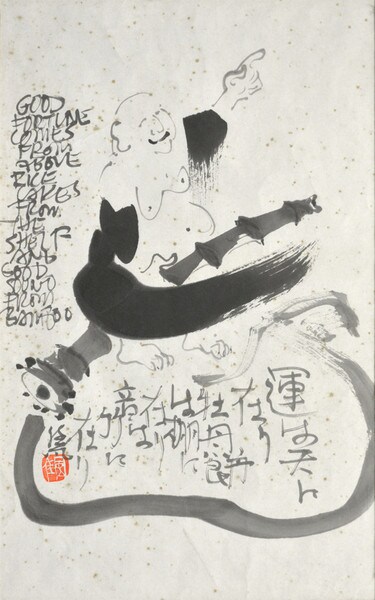 GOOD
FORTUNE
COMES
FROM
ABOVE
RICE
CAKES
FROM
THE
SHELF
AND
GOOD
SOUND
FROM
BAMBOO
運は天に
在り
牡丹餅
は棚に
在り
音は
竹に
在り